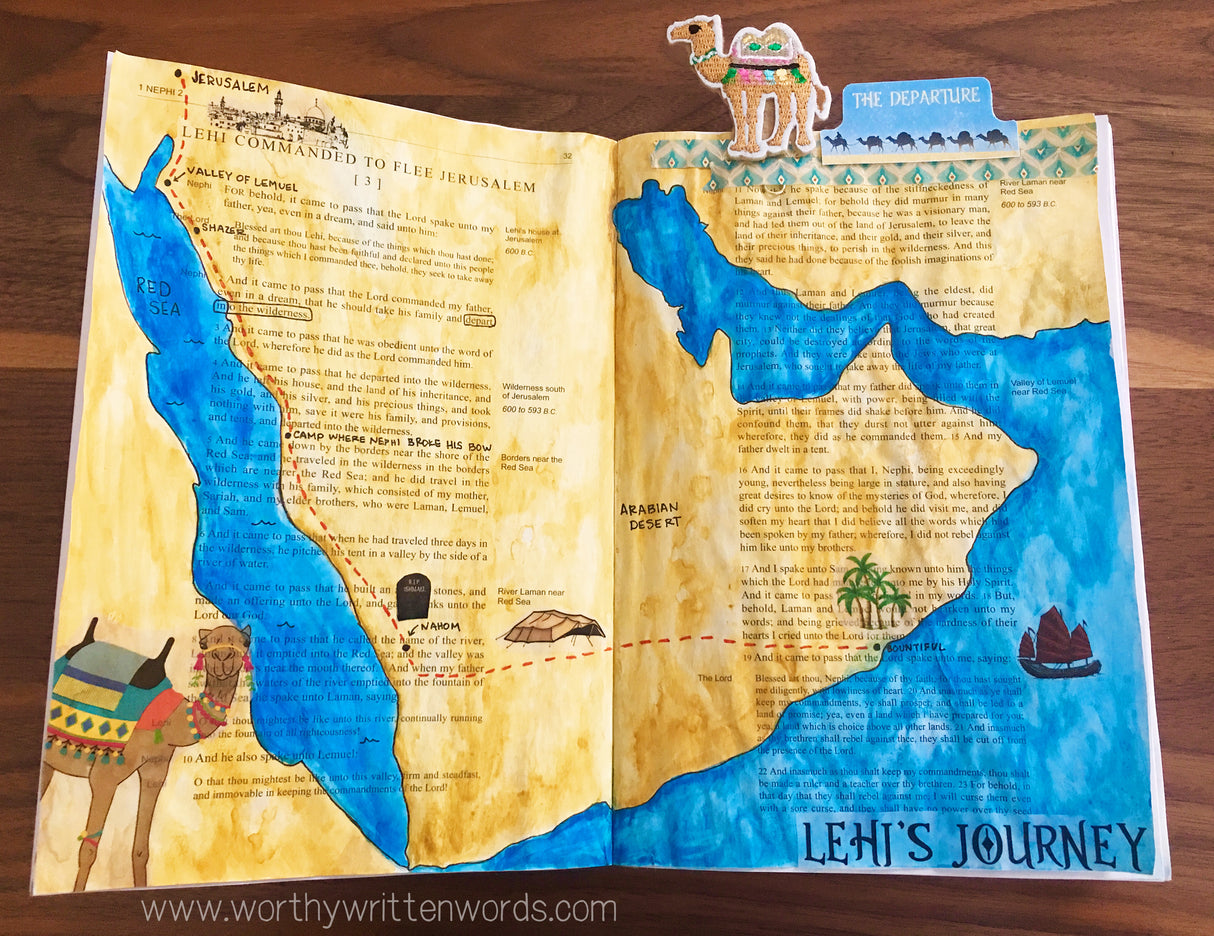 JERUSALEM
1 NEPHI 2
32
LEHI COMMANDED TO FLEE JERUSALEM
[ 3 ]
VALLEY OF LEMUEL
Nephi
FOR behold, it came to pass that the Lord spake unto my
father, yea, even in a dream, and said unto him:
Lehi's house at
Jerusalem
600 B.C.
The Lord
SHAZER
Blessed art thou Lehi, because of the things which thou hast done;
and because thou hast been faithful and declared unto this people
the things which I commanded thee, behold, they seek to take away
thy life.
Nephi
2 And it came to pass that the Lord commanded my father,
even in a dream, that he should take his family and depart
into the wilderness.
RED
SEA
3 And it came to pass that he was obedient unto the word of
the Lord, wherefore he did as the Lord commanded him.
4 And it came to pass that he departed into the wilderness.
And he left his house, and the land of his inheritance, and
his gold, and his silver, and his precious things, and took
nothing with him, save it were his family, and provisions,
and tents, and departed into the wilderness.
Wilderness south
of Jerusalem
600 to 593 B.C.
CAMP WHERE NEPHI BROKE HIS BOW
5 And he came down by the borders near the shore of the
Red Sea; and he traveled in the wilderness in the borders
which are nearer the Red Sea; and he did travel in the
wilderness with his family, which consisted of my mother,
Sariah, and my elder brothers, who were Laman, Lemuel,
and Sam.
Borders near the
Red Sea
6 And it came to pass that when he had traveled three days in
the wilderness, he pitched his tent in a valley by the side of a
river of water.
7 And it came to pass that he built an stones, and
made an offering unto the Lord, and unto the
Lord our God.
R.I.P
ISHMAEL
River Laman near
Red Sea
NAHOM
8 And it came to pass that he called the name of the river,
it emptied into the Red Sea; and the valley was
near the mouth thereof. 9 And when my father
waters of the river emptied into the fountain of
Sea, he spake unto Laman, saying:
Lehi
O that thou mightest be like unto this river, continually running
into the fountain of all righteousness!
Nephi
10 And he also spake unto Lemuel:
Lehi
O that thou mightest be like unto this valley, firm and steadfast,
and immovable in keeping the commandments of the Lord!
THE DEPARTURE
Nephi
11 Now he spake because of the stiffneckedness of
Laman and Lemuel; for behold they did murmur in many
things against their father, because he was a visionary man,
and had led them out of the land of Jerusalem, to leave the
land of their inheritance, and their gold, and their silver, and
their precious things, to perish in the wilderness. And this
they said he had done because of the foolish imaginations of
his heart.
River Laman near
Red Sea
600 to 593 B.C.
12 And thus Laman and Lemuel, being the eldest, did
murmur against their father. And they did murmur because
they knew not the dealings of that God who had created
them. 13 Neither did they believe that Jerusalem, that great
city, could be destroyed according to the words of the
prophets. And they were like unto the Jews who were at
Jerusalem, who sought to take away the life of my father.
14 And it came to pass that my father did speak unto them in
the valley of Lemuel, with power, being filled with the
Spirit, until their frames did shake before him. And he did
confound them, that they durst not utter against him;
wherefore, they did as he commanded them. 15 And my
father dwelt in a tent.
Valley of Lemuel
near Red Sea
16 And it came to pass that I, Nephi, being exceedingly
young, nevertheless being large in stature, and also having
great desires to know of the mysteries of God, wherefore, I
did cry unto the Lord; and behold he did visit me, and did
soften my heart that I did believe all the words which had
been spoken by my father; wherefore, I did not rebel against
him like unto my brothers.
ARABIAN
DESERT
17 And I spake unto Sam, known unto him the things
which the Lord had unto me by his Holy Spirit.
And it came to pass in my words. 18 But,
behold, Laman and not hearken unto my
words; and being grieved because of the hardness of their
hearts I cried unto the Lord for them.
BOUNTIFUL
19 And it came to pass that the Lord spake unto me, saying:
The Lord
Blessed art thou, Nephi, because of thy faith, for thou hast sought
me diligently, with lowliness of heart. 20 And inasmuch as ye shall
keep my commandments, ye shall prosper, and shall be led to a
land of promise; yea, even a land which I have prepared for you;
yea, a land which is choice above all other lands. 21 And inasmuch
as thy brethren shall rebel against thee, they shall be cut off from
the presence of the Lord.
22 And inasmuch as thou shalt keep my commandments, thou shalt
be made a ruler and a teacher over thy brethren. 23 For behold, in
that day that they shall rebel against me, I will curse them even
with a sore curse, and they shall have no power over thy seed
LEHI'S JOURNEY
www.worthywrittenwords.com